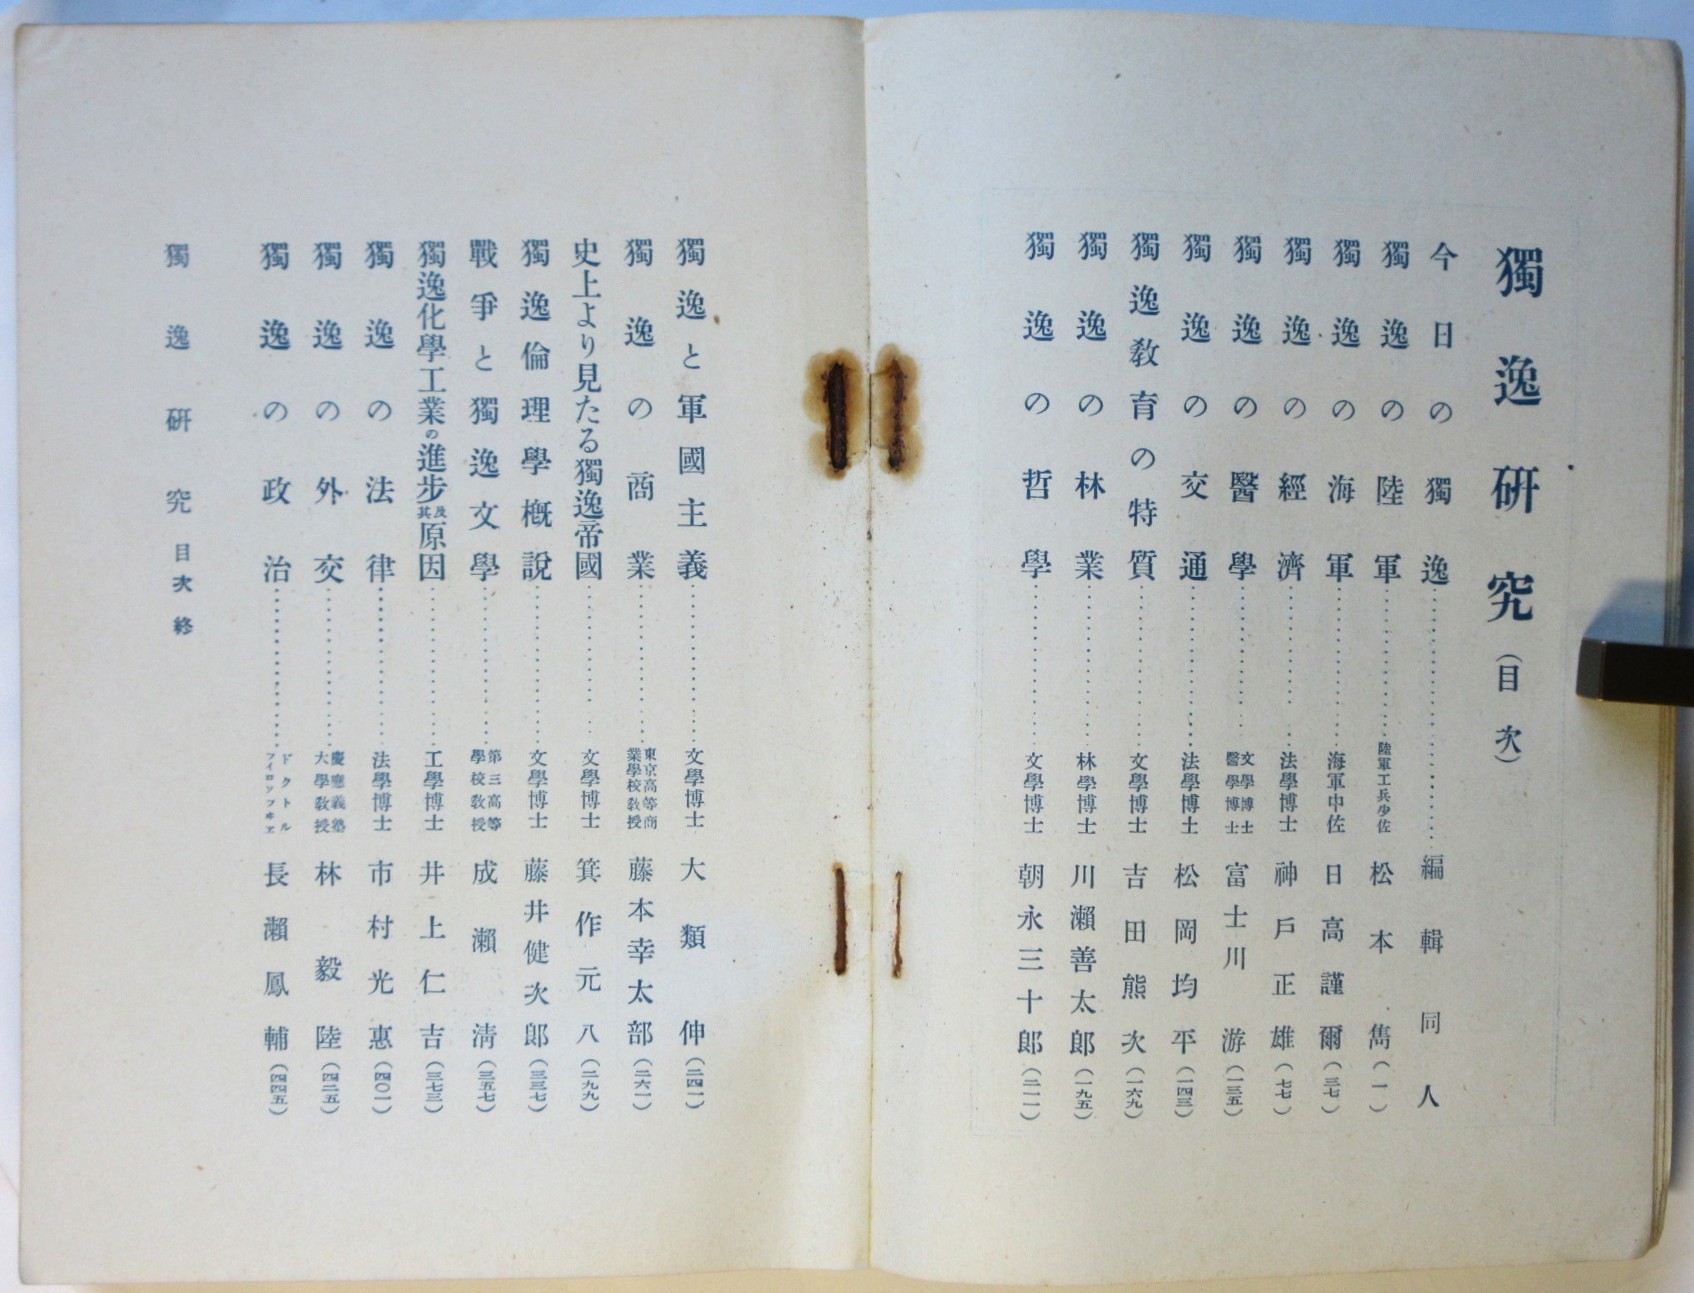 獨逸硏究(目次)
今日の獨逸……………………編輯同人
獨逸の陸軍……………陸軍工兵少佐 松本 雋(一)
獨逸の海軍……………海軍中佐 日高謹爾(三七)
獨逸の經濟……………法學博士 神戶正雄(七七)
獨逸の醫學……………文學博士醫學博士 富士川 游(一三五)
獨逸の交通……………法學博士 松岡均平(一四三)
獨逸敎育の特質……………文學博士 吉田熊次(一六九)
獨逸の林業……………林學博士 川瀨善太郞(一九五)
獨逸の哲學……………文學博士 朝永三十郞(二一一)
獨逸と軍國主義……………文學博士 大類 伸(二四一)
獨逸の商業……………東京高等商業學校敎授 藤本幸太郎(二六一)
史上より見たる獨逸帝國……………文學博士 箕作元八(二九九)
獨逸倫理學槪說……………文學博士 藤井健次郞(三三七)
戰爭と獨逸文學……………第三高等學校敎授 成瀨 淸(三五七)
獨逸化學工業の進步及其原因……………工學博士 井上仁吉(三七三)
獨逸の法律……………法學博士 市村光惠(四〇一)
獨逸の外交……………慶應義塾大學敎授 林 毅陸(四二五)
獨逸の政治……………ドクトルフイロソフヰヱ 長瀨鳳輔(四四五)
獨逸硏究目次終